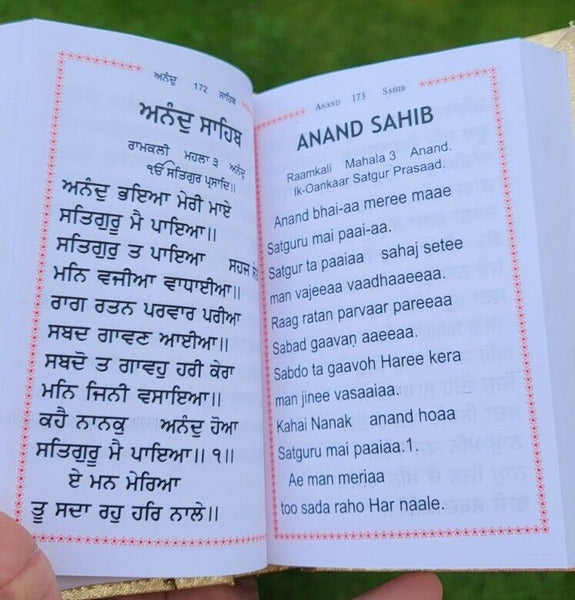 ਅਨੰਦੁ 172 ਸਾਹਿਬ
ਅਨੰਦੁ ਸਾਹਿਬ
ਰਾਮਕਲੀ ਮਹਲਾ ੩ ਅਨੰਦੁ
ੴ ਸਤਿਗੁਰ ਪ੍ਰਸਾਦਿ॥
ਅਨੰਦੁ ਭਇਆ ਮੇਰੀ ਮਾਏ
ਸਤਿਗੁਰੂ ਮੈ ਪਾਇਆ॥
ਸਤਿਗੁਰੁ ਤ ਪਾਇਆ ਸਹਜ
ਮਨਿ ਵਜੀਆ ਵਾਧਾਈਆ॥
ਰਾਗ ਰਤਨ ਪਰਵਾਰ ਪਰੀਆ
ਸਬਦ ਗਾਵਣ ਆਈਆ॥
ਸਬਦੋ ਤ ਗਾਵਹੁ ਹਰੀ ਕੇਰਾ
ਮਨਿ ਜਿਨੀ ਵਸਾਇਆ॥
ਕਹੈ ਨਾਨਕੁ ਅਨੰਦੁ ਹੋਆ
ਸਤਿਗੁਰੂ ਮੈ ਪਾਇਆ॥ ੧॥
ਏ ਮਨ ਮੇਰਿਆ
ਤੂ ਸਦਾ ਰਹੁ ਹਰਿ ਨਾਲੇ॥
Anand 173 Sahib
ANAND SAHIB
Raamkali Mahala 3 Anand.
Ik-Oankaar Satgur Prasaad.
Anand bhai-aa meree maae
Satguru mai paai-aa.
Satgur ta paaiaa sahaj setee
man vajeeaa vaadhaaeeaa.
Raag ratan parvaar pareeaa
Sabad gaavaṇ aaeeaa.
Sabdo ta gaavoh Haree kera
man jinee vasaaiaa.
Kahai Nanak anand hoaa
Satguru mai paaiaa.1.
Ae man meriaa
too sada raho Har naale.